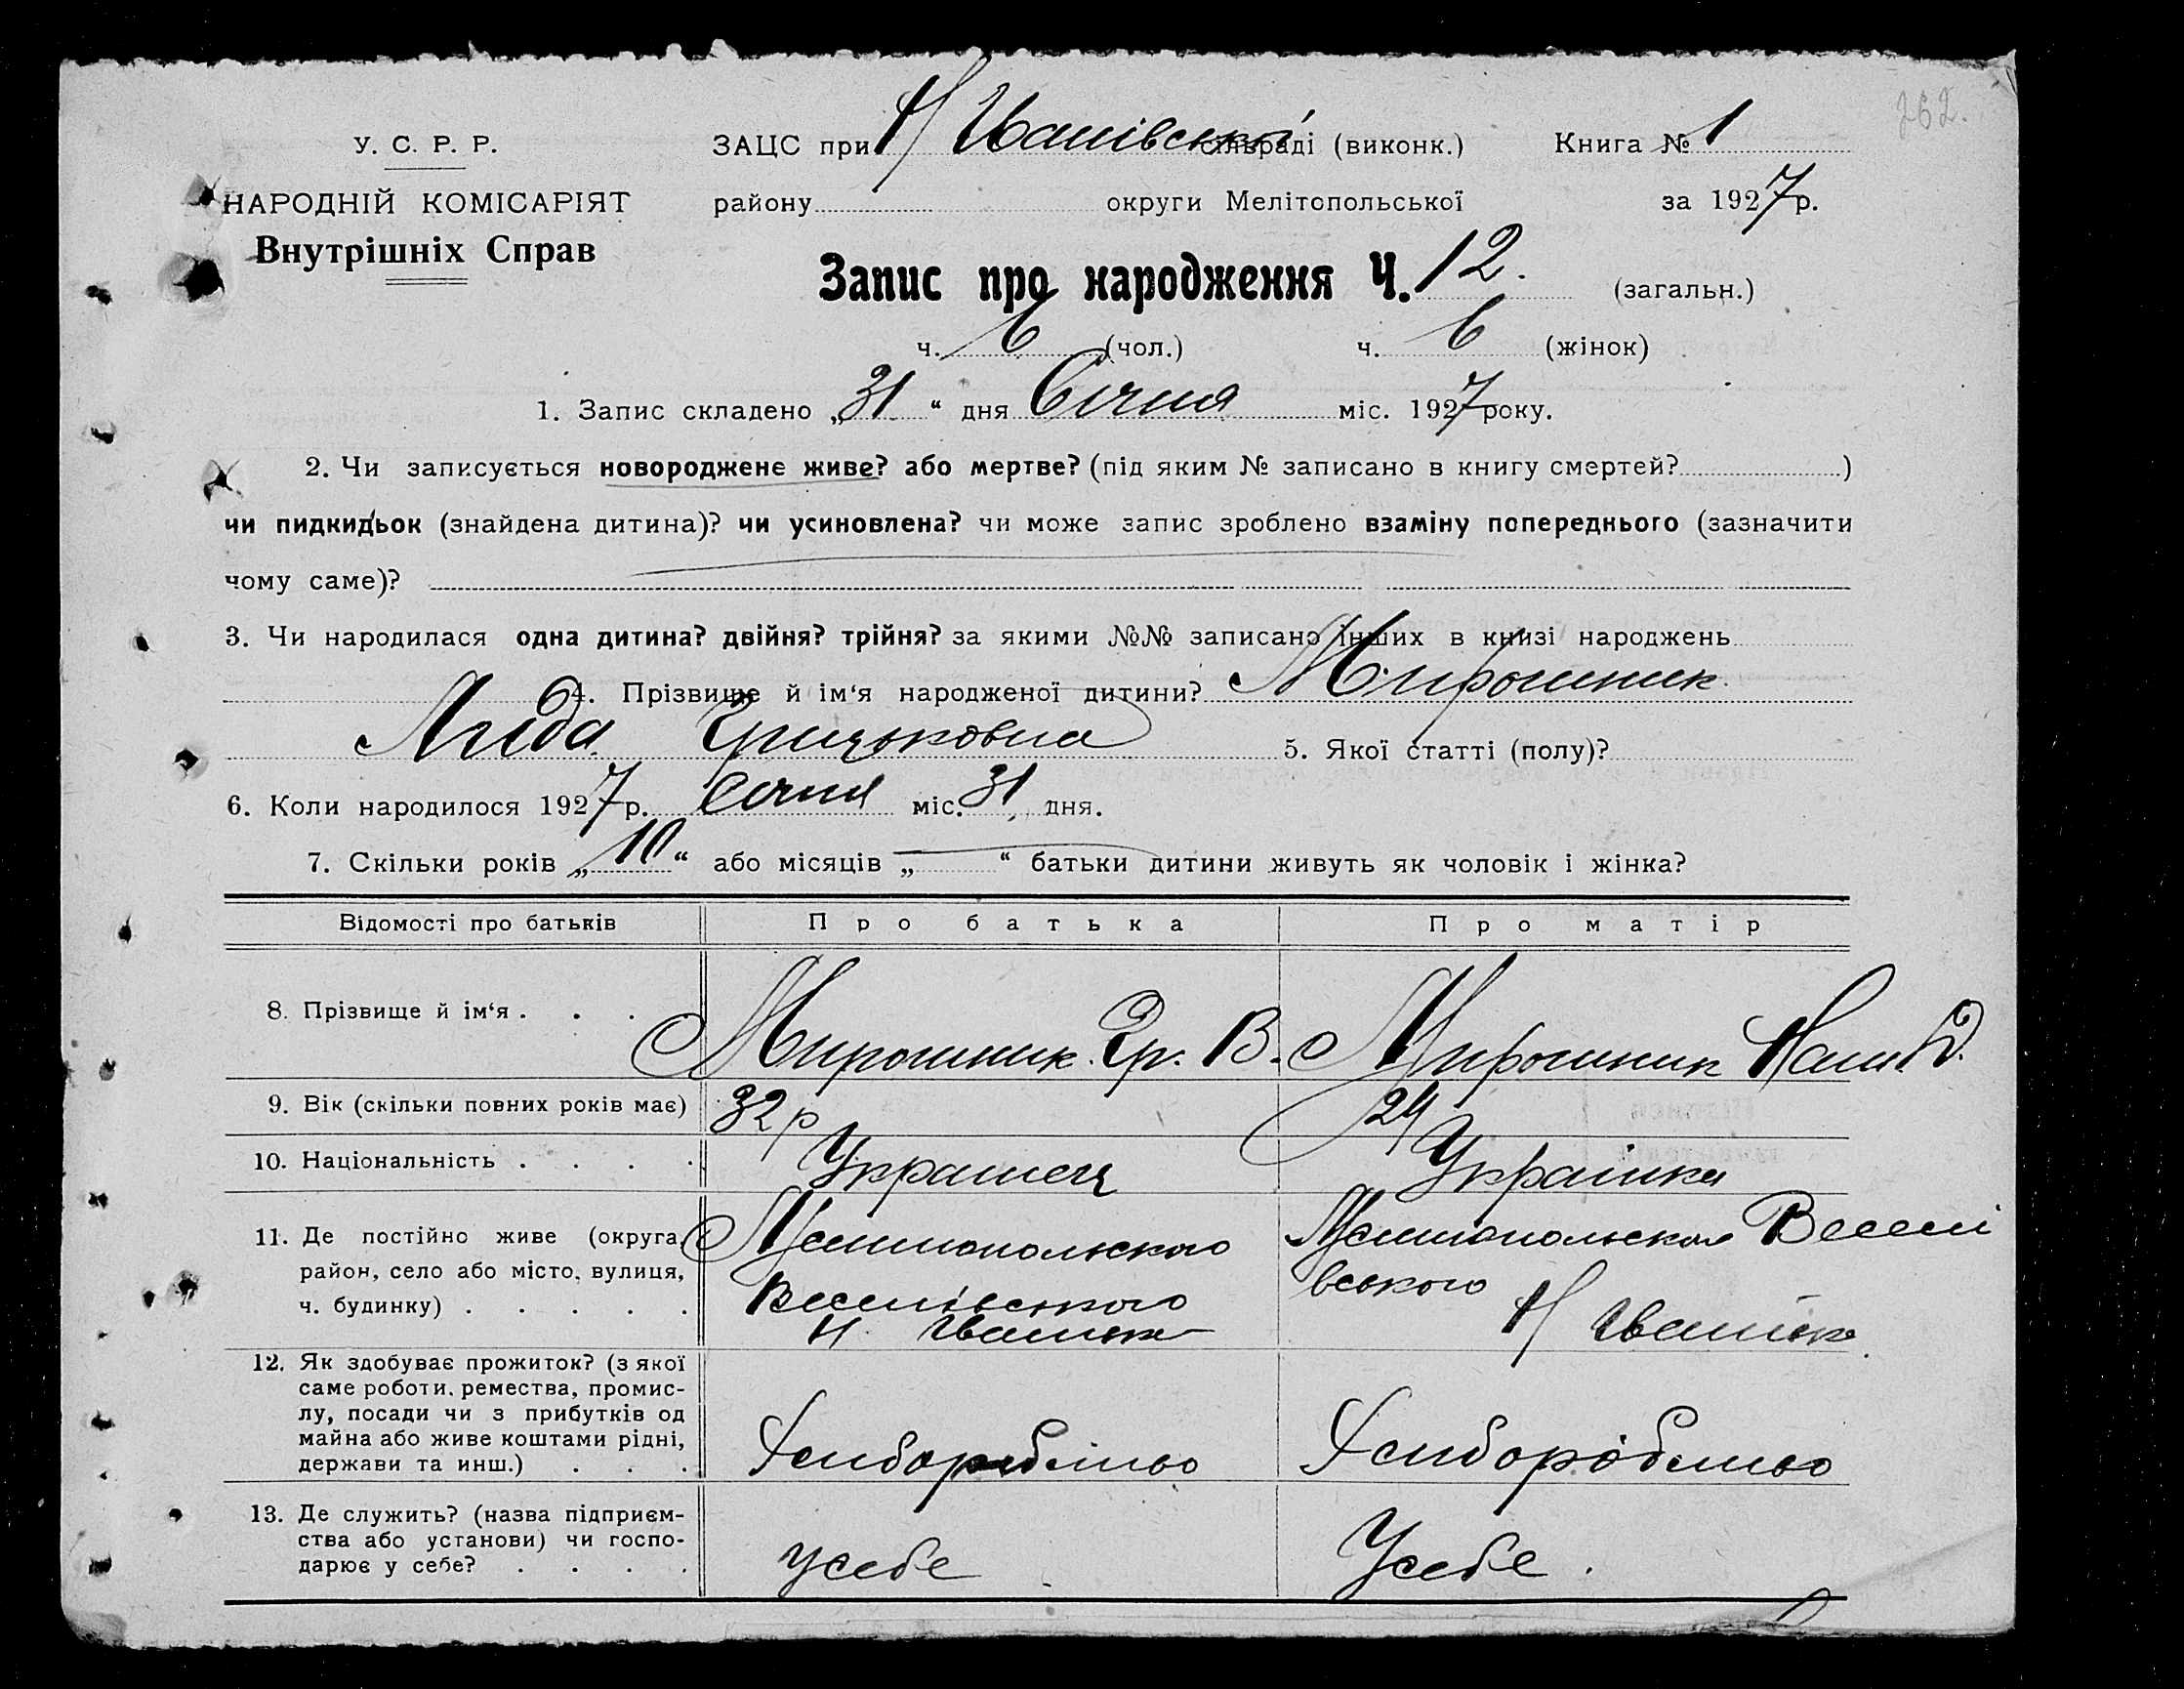 262.
У. С. Р. Р.
НАРОДНІЙ КОМІСАРІЯТ
Внутрішніх Справ
ЗАЦС при Н/Іванівській сільраді (виконк.) Книга № 1
району округи Мелітопольської за 1927 р.
Запис про народження Ч. 12. (загальн.)
ч. 6 (чол.) ч. 6 (жінок)
1. Запис складено „31“ дня Січня міс. 1927 року.
2. Чи записується новороджене живе? або мертве? (під яким № записано в книгу смертей? )
чи пидкидьок (знайдена дитина)? чи усиновлена? чи може запис зроблено взаміну попереднього (зазначити
чому саме)?
3. Чи народилася одна дитина? двійня? трійня? за якими №№ записано інших в книзі народжень
4. Прізвище й ім‘я народженої дитини? Мирошник
Лида Грицьковна 5. Якої статті (полу)?
6. Коли народилося 1927 р. Січня міс. 31 дня.
7. Скільки років „10“ або місяців „ “ батьки дитини живуть як чоловік і жінка?
Відомості про батьків Про батька Про матір
8. Прізвище й ім‘я . . . Мирошник Гр. В. Мирошник
9. Вік (скільки повних років має) 32 р 24
10. Національність . . . . Украінець Украінка
11. Де постійно живе (округа, район, село або місто, вулиця, ч. будинку) . . . . .
Мелитопольского
Веселівського
Н. Іванівка
Мелитопольской Веселі
вського
Н/Іванівка
12. Як здобуває прожиток? (з якої
саме роботи, ремества, промис-
лу, посади чи з прибутків од
майна або живе коштами рідні,
держави та инш.) . . .
Хлиборобство Хлиборобство
13. Де служить? (назва підприєм-
ства або установи) чи госпо-
дарює у себе? . . . .
усебе Усебе.